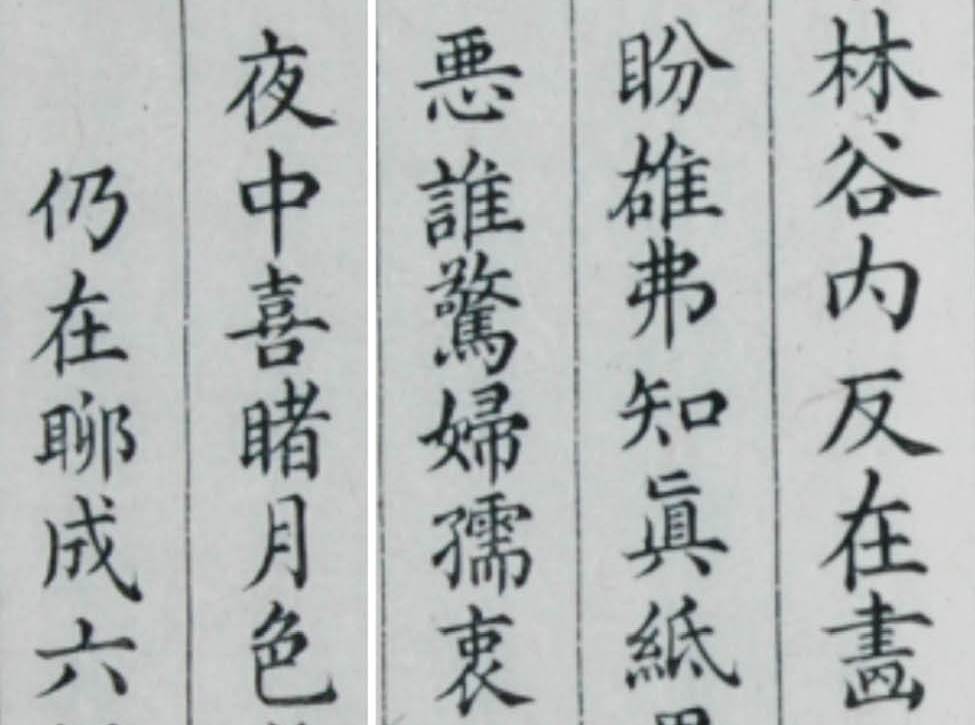 林谷内反在畵
盼雄弗知眞紙
悪誰驚婦孺衷
夜中喜睹月色
仍在聊成六